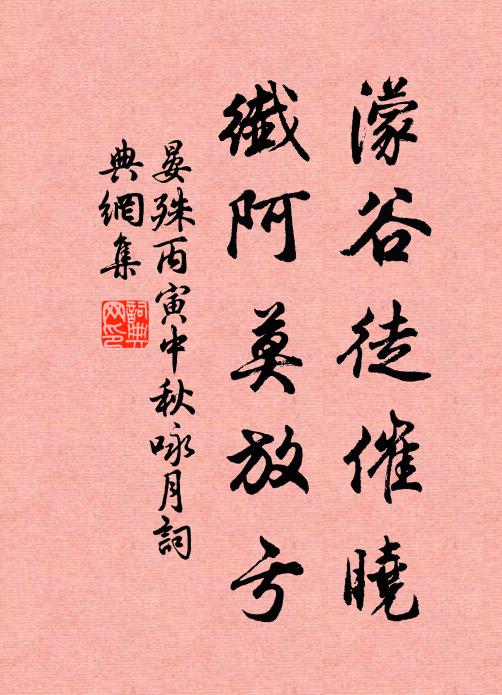 濛谷徒催曉
纖阿莫放亏
晏殊丙寅中秋咏月詞
典網集
詞典
网印